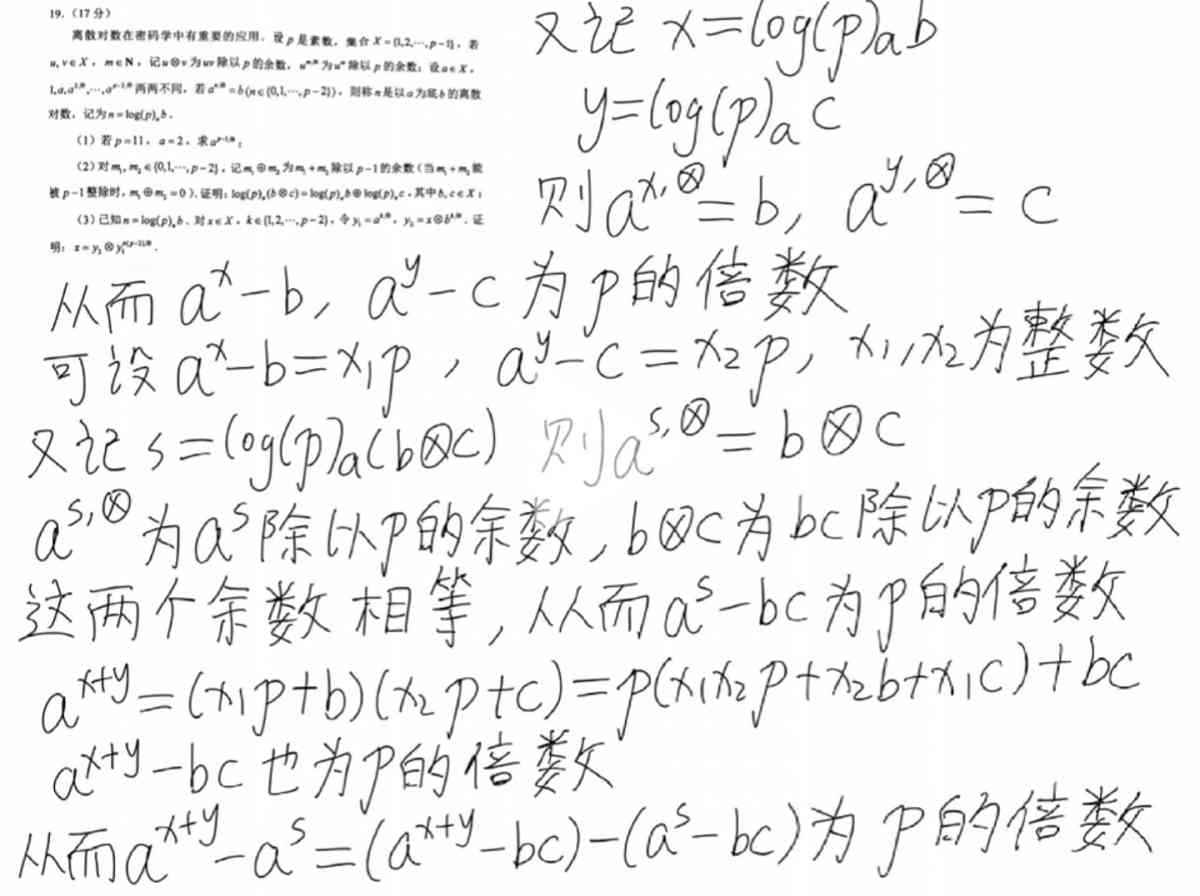 19.（17 分）
离散对数在密码学中有重要的应用。设 p 是素数，集合 X={1,2,⋯,p−1}，若
u,v∈X，m∈N，记 u⊗v 为 uv 除以 p 的余数，u^{m,⊗} 为 u^m 除以 p 的余数；设 a∈X，
1,a,a^{2,⊗},⋯,a^{p−2,⊗} 两两不同，若 a^{n,⊗}=b(n∈{0,1,⋯,p−2})，则称 n 是以 a 为底 b 的离散
对数，记为 n=log(p)_a b．
（1）若 p=11，a=2，求 a^{p−1,⊗}；
（2）对 m₁,m₂∈{0,1,⋯,p−2}，记 m₁⊕m₂ 为 m₁+m₂ 除以 p−1 的余数（当 m₁+m₂ 能
被 p−1 整除时，m₁⊕m₂=0）．证明：log(p)_a(b⊗c)=log(p)_a b⊕log(p)_a c，其中 b,c∈X；
（3）已知 n=log(p)_a b．对 x∈X，k∈{1,2,⋯,p−2}，令 y₁=a^{k,⊗}，y₂=x⊗b^{k,⊗}．证
明：x=y₂⊗y₁^{n(p−2),⊗}．
又记 x=log(p)_a b
y=log(p)_a c
则 a^{x,⊗}=b, a^{y,⊗}=c
从而 a^x−b, a^y−c 为 p 的倍数
可设 a^x−b=x₁p , a^y−c=x₂p, x₁,x₂为整数
又记 s=log(p)_a(b⊗c) 则 a^{s,⊗}=b⊗c
a^{s,⊗} 为 a^s 除以 p 的余数, b⊗c 为 bc 除以 p 的余数
这两个余数相等, 从而 a^s−bc 为 p 的倍数
a^{x+y}=(x₁p+b)(x₂p+c)=p(x₁x₂p+x₂b+x₁c)+bc
a^{x+y}−bc 也为 p 的倍数
从而 a^{x+y}−a^s=(a^{x+y}−bc)−(a^s−bc)为 p 的倍数